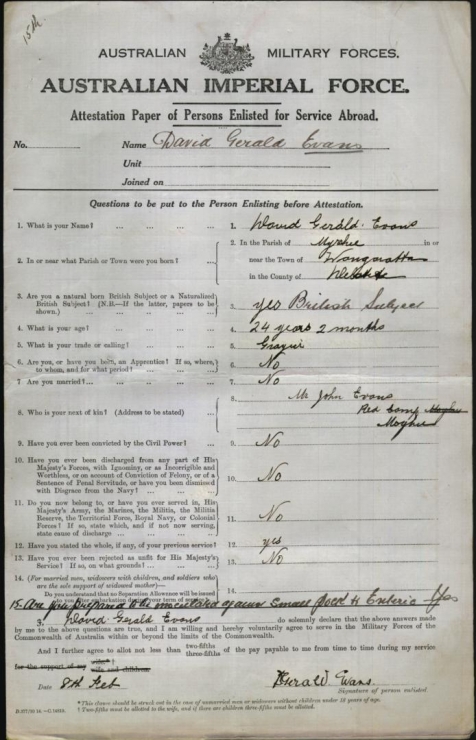 15th
AUSTRALIAN MILITARY FORCES.
AUSTRALIAN IMPERIAL FORCE.
Attestation Paper of Persons Enlisted for Service Abroad.
No. Name David Gerald Evans
Unit
Joined on
Questions to be put to the Person Enlisting before Attestation.
1. What is your Name? ... ... ... ... 1. David Gerald Evans
2. In or near what Parish or Town were you born? ... 2. In the Parish of Myrhee in or
near the Town of Wangaratta
in the County of
3. Are you a natural born British Subject or a Naturalized British Subject? (N.B.—If the latter, papers to be shown.) ... 3. yes British Subject
4. What is your age? ... ... ... 4. 24 years 2 months
5. What is your trade or calling? ... ... 5. Grazier
6. Are you, or have you been, an Apprentice? If so, where, to whom, and for what period? ... 6. No
7. Are you married? ... ... ... 7. No
8. Who is your next of kin? (Address to be stated) ... 8. Mr John Evans
Red Camp
Moyhu
9. Have you ever been convicted by the Civil Power? ... 9. No
10. Have you ever been discharged from any part of His Majesty's Forces, with Ignominy, or as Incorrigible and Worthless, or on account of Conviction of Felony, or of a Sentence of Penal Servitude, or have you been dismissed with Disgrace from the Navy? ... 10. No
11. Do you now belong to, or have you ever served in, His Majesty's Army, the Marines, the Militia, the Militia Reserve, the Territorial Force, Royal Navy, or Colonial Forces? If so, state which, and if not now serving, state cause of discharge ... 11. No
12. Have you stated the whole, if any, of your previous service? 12. yes
13. Have you ever been rejected as unfit for His Majesty's Service? If so, on what grounds? ... 13. No
14. (For married men, widowers with children, and soldiers who are the sole support of widowed mother)—
Do you understand that no Separation Allowance will be issued 14.
15 Are you prepared to be inoculated against Small pock & Enteric Yes
I, David Gerald Evans do solemnly declare that the above answers made
by me to the above questions are true, and I am willing and hereby voluntarily agree to serve in the Military Forces of the
Commonwealth of Australia within or beyond the limits of the Commonwealth.
And I further agree to allot not less than two-fifths three-fifths of the pay payable to me from time to time during my service
for the support of my wife* wife and children.
Date 8th Feb Gerald Evans.
Signature of person enlisted.
* This clause should be struck out in the case of unmarried men or widowers without children under 18 years of age.
† Two-fifths must be allotted to the wife, and if there are children three-fifths must be allotted.